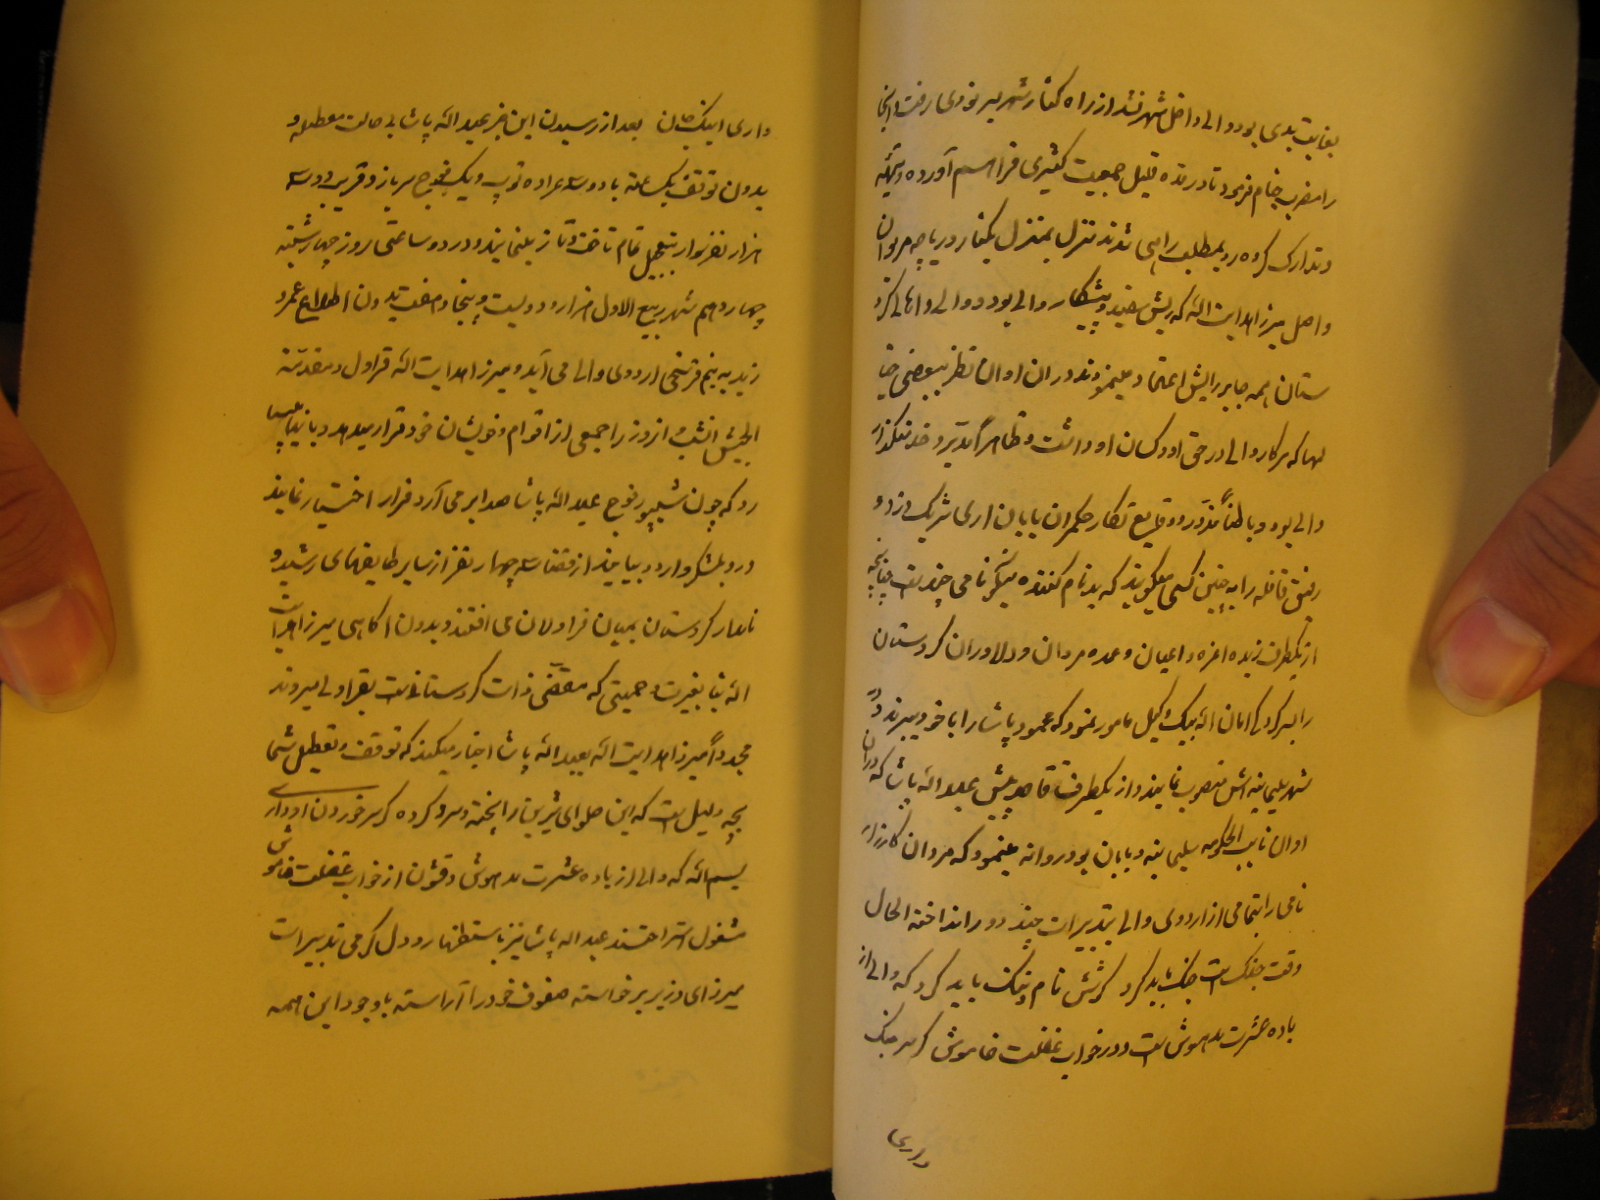 بغایت بدی بود والی داخل شهر نشد از راه کنار شهر بیرون دی رفت و آنجا
را مضرب خیام فرمود تا در مدة قلیل جمعیت کثیری فراهم آورده و تهیّه
و تدارک کرده رو بمطلب راهی شدند منزل بمنزل بکنار دریاچه مریوان
واصل میرزا هدایت الله که ریش سفید و پیشکار والی بود و والی و اهالی کرد
ستان همه جا برایش اعتماد مینمودند در ان اوان نظر ببعضی خیا
لها که سرکار والی در حق او و کسان او داشت و ظاهراً مدبّر و خدمتگذار
والی بود و باطناً مزوّر و و قایع نگار حکمران بابان اری شریک دزد و
رفیق قافله را به چنین کسی میگویند که بدنام کننده نیکو نامی چند است چنانچه
از یکطرف زبده اعزه و اعیان و عمده مردان و دلاوران کردستان
را بسرکردگی امان الله بیک وکیل مامور نمود که محمود پاشا را با خود ببرند و در
شهر سلیمانیه اش منصوب نمایند و از یکطرف قاصد پیش عبدالله پاشا که در ان
اوان نایب الحکومه سلیمانیه و بابان بود روانه مینمود که مردان کارزار
نامی را بتمامی از اردوی والی بتدبیرات چند دور انداخته الحال
وقت جنک است جنک باید کرد کوشش نام و ننک باید کرد که والی از
باده عشرت مدهوش است و در خواب غفلت خاموش کر سر جنک
داری
داری اینک میدان بعد از رسیدن این خبر عبدالله پاشا بی حالت معطلی و
بدون توقف یک لمحه با دو سه عراده توپ و یک فوج سرباز و قریب دو سه
هزار نفر سوار بتعجیل تمام تاخت و تاز مینمایند و در دو ساعتی روز چهارشنبه
چهاردهم شهر ربیع الاول هزار و دویست و پنجاه و هفت بدون اطلاع عمرو
زید به نیم فرسخی اردوی والی می آید و میرزا هدایت الله قراول و مقدمة
الجیش انشب و انروز را جمعی از اقوام و خویشان خود قرار میدهد و بانها میسپا
رد که چون شیپور فوج عبدالله پاشا صدا بر می آرد فرار اختیار نمایند
و رو بلشکر و اردو بیایند از قضا سه چهار نفر از سایر طایفهای رشید و
نامدار کردستان بمیان قراولان می افتند و بدون آگاهی میرزا هدایت
الله بنا بغیرت و حمیتی که مقتضی ذات کردستانیست بقراولی میروند
مجدداً میرزا هدایت الله بعبدالله پاشا اخبار میکند که توقف و تعطیل شما
بچه دلیل است که این حلوای شیرین را پخته و سرد کرده کر سر خوردن او داری
بسم الله که والی از باده عشرت مدهوش و قشون از خواب غفلت خاموش
مشغول استراحتند عبدالله پاشا نیز باستظهار و دل کرمی تدبیرات
میرزای وزیر برخواسته صفوف خود را آراسته با وجود این همه